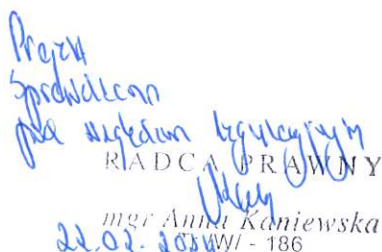 Projekt
Sprawdzono
pod względem legislacyjnym
RADCA PRAWNY
mgr Anna Kaniewska
22.02.
- 186